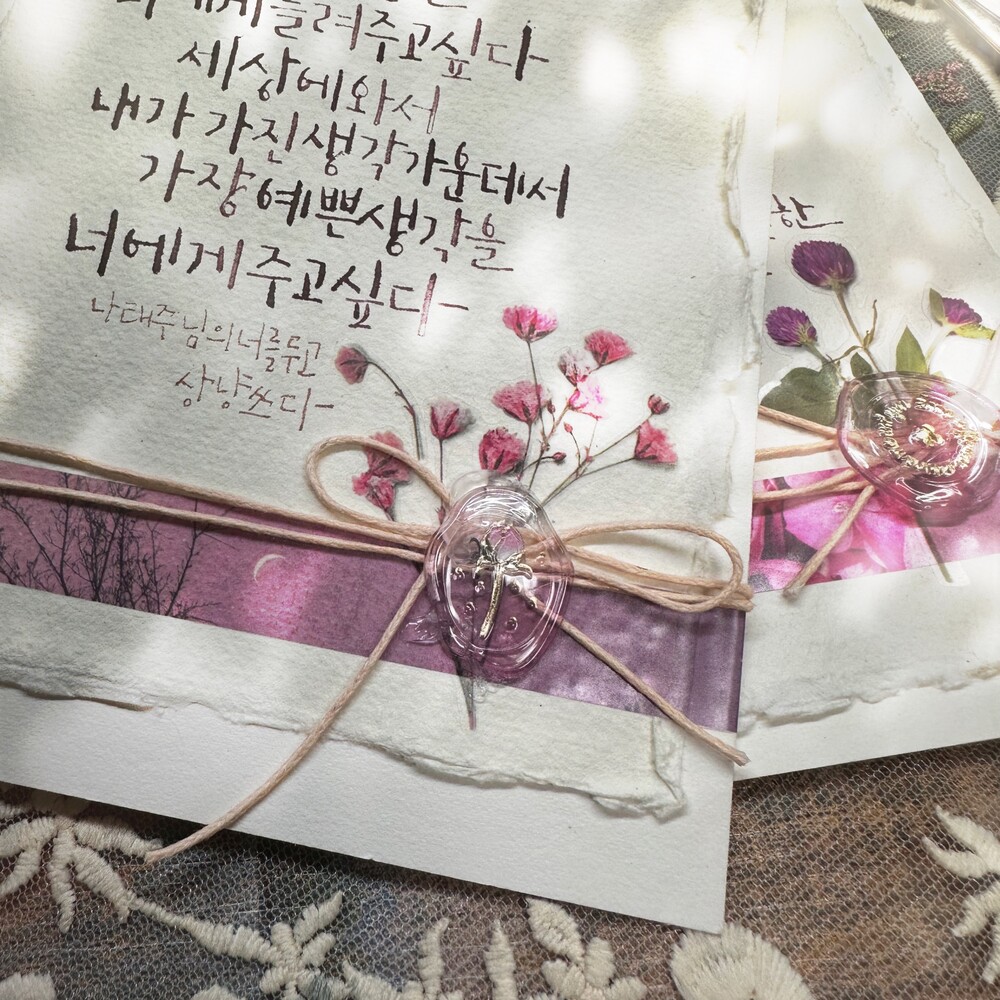 에게들려주고싶다-
세상에와서
내가 가진생각가운데서
가장예쁜생각을
너에게주고싶다-
나태주님의너를두고
상냥쓰다-
한